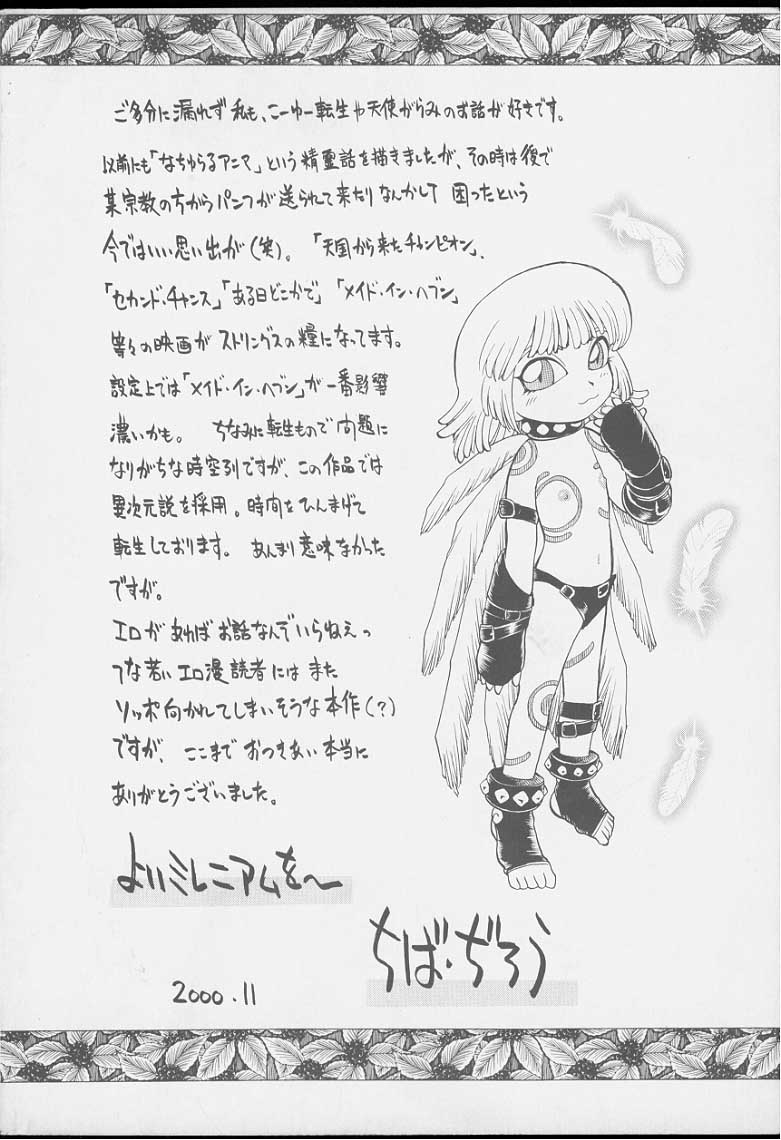 ご多分に漏れず私も、こーゆー転生や天使がらみのお話が好きです。
以前にも「なちゅらるアニマ」という精霊話を描きましたが、その時は後で
某宗教の方からパンフが送られて来たりなんかして 困ったという
今ではいい思い出が(笑)。「天国から来たチャンピオン」、
「セカンド・チャンス」「ある日どこかで」「メイド・イン・ヘブン」
等々の映画がストリングスの糧になってます。
設定上では「メイド・イン・ヘブン」が一番影響
濃いかも。 ちなみに転生もので問題に
なりがちな時空列ですが、この作品では
異次元説を採用。時間をひんまげて
転生しております。 あんまり意味なかった
ですが。
エロがあればお話なんざいらねぇっ
てな若いエロ漫読者には また
ソッポ向かれてしまいそうな本作(?)
ですが、ここまでおつきあい本当に
ありがとうございました。
よいミレニアムを〜
ちば・ぢろう
2000.11